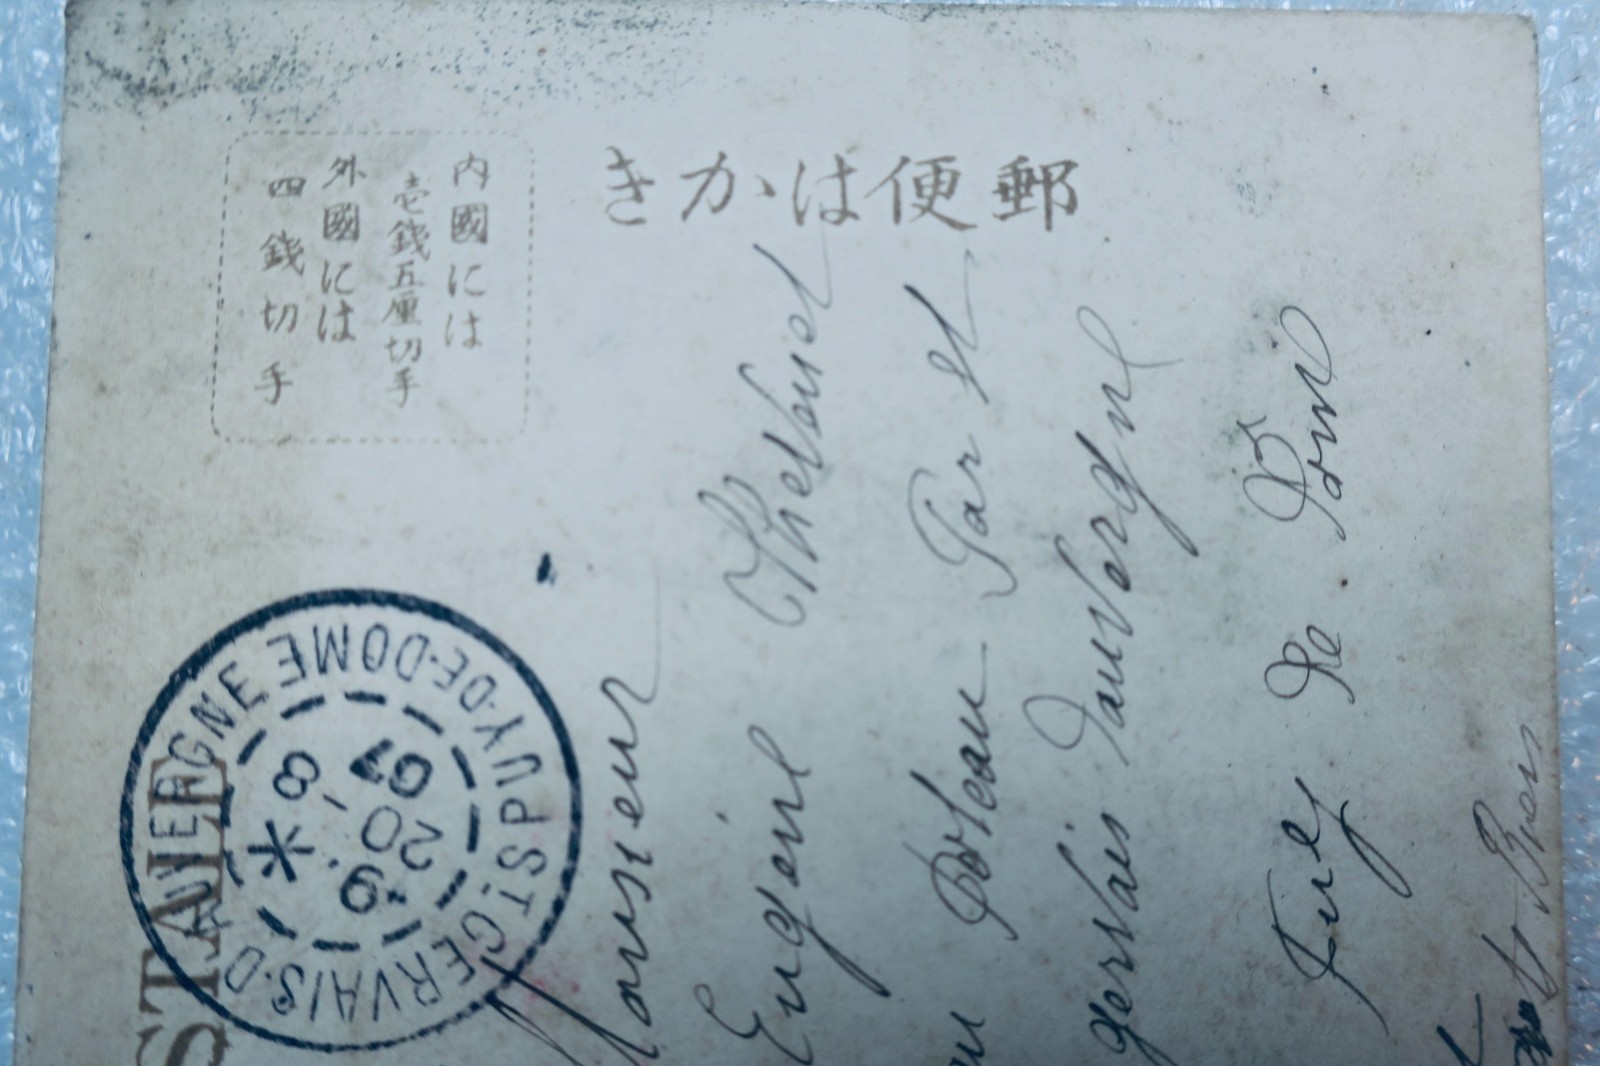 郵便はかき
内國には
壱錢五厘切手
外國には
四錢切手
STALE
ST GERVAIS-D'AUVERGNE PUY-DE-DOME
8 *
20 -9
07
Monsieur
Eugène Thevenet
au Poteau Par St
gervais dauvergne
Puy de Dome